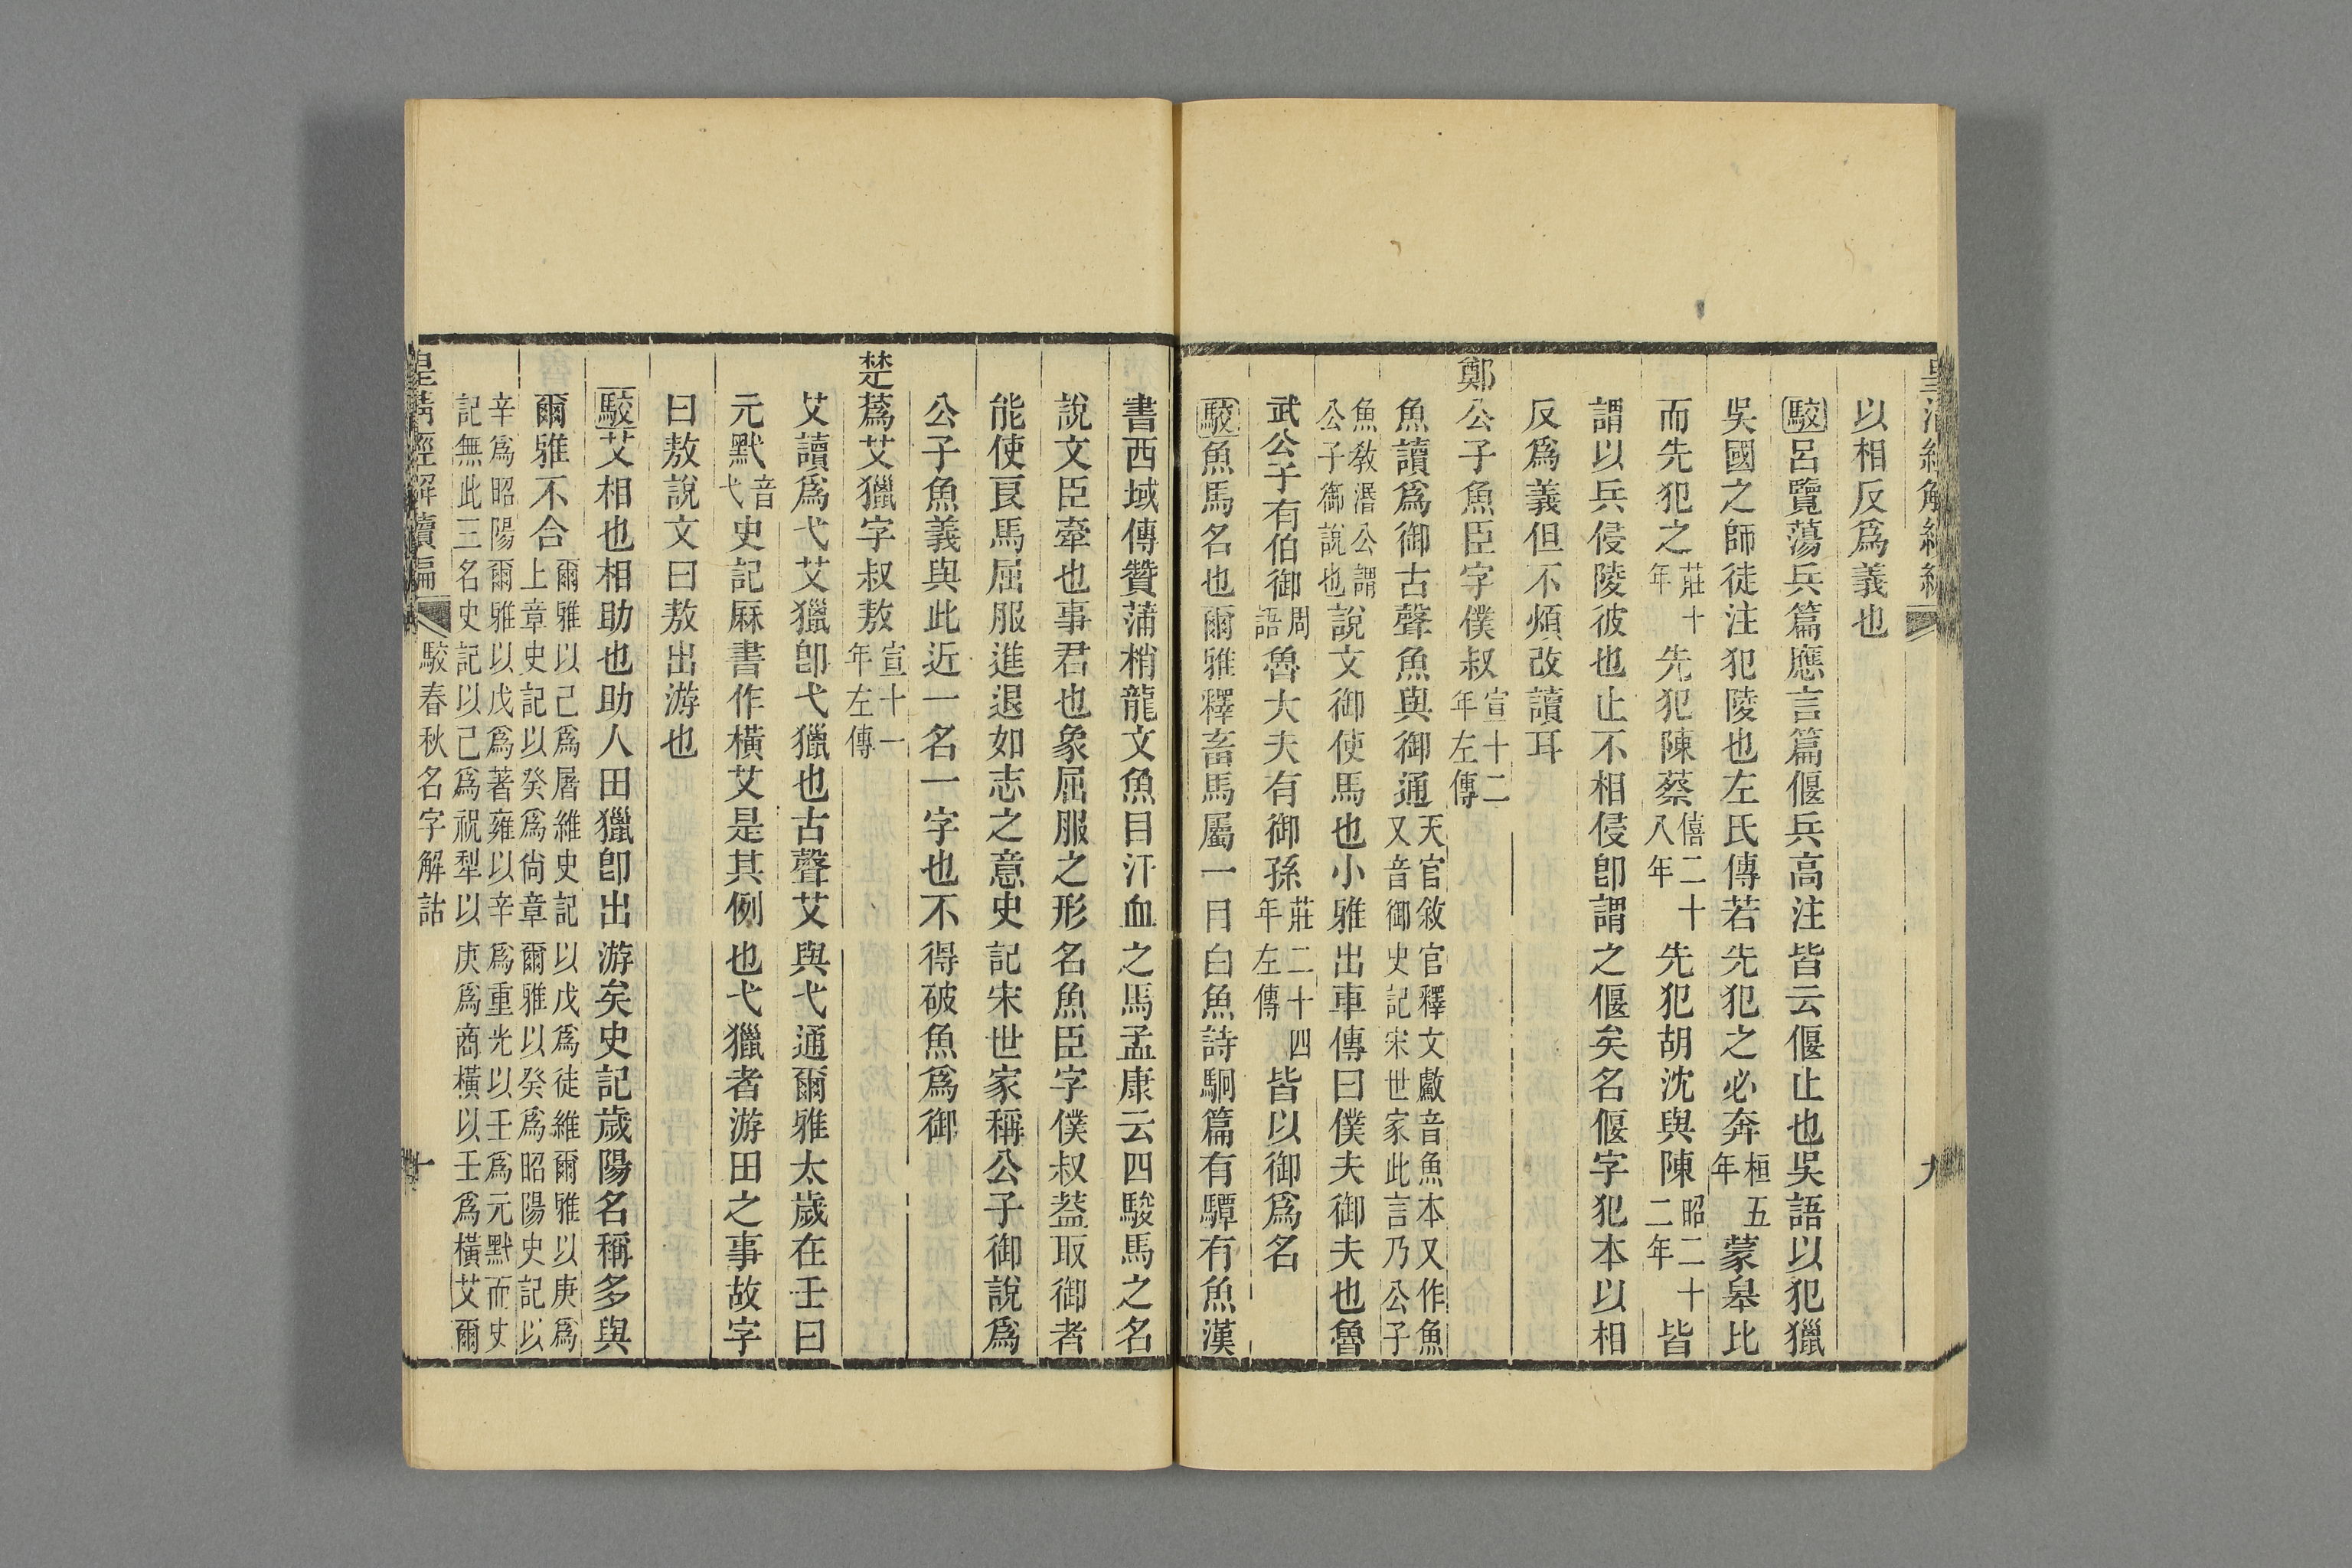 皇清經解續編
九
以相反爲義也
駮呂覽蕩兵篇應言篇偃兵高注皆云偃止也吳語以犯獵
吳國之師徒注犯陵也左氏傳若先犯之必奔桓五年蒙臯比
而先犯之莊十年先犯陳蔡僖二十八年先犯胡沈與陳昭二十二年皆
謂以兵侵陵彼也止不相侵卽謂之偃矣名偃字犯本以相
反爲義但不煩改讀耳
鄭公子魚臣字僕叔宣十二年左傳
魚讀爲御古聲魚與御通天官敘官釋文䱷音魚本又作魚又音御史記宋世家此言乃公子
魚敎湣公謂公子御說也說文御使馬也小雅出車傳曰僕夫御夫也魯
武公子有伯御周語魯大夫有御孫莊二十四年左傳皆以御爲名
駮魚馬名也爾雅釋畜馬屬一目白魚詩駉篇有驔有魚漢
書西域傳贊蒲梢龍文魚目汗血之馬孟康云四駿馬之名
說文臣牽也事君也象屈服之形名魚臣字僕叔葢取御者
能使良馬屈服進退如志之意史記宋世家稱公子御說爲
公子魚義與此近一名一字也不得破魚爲御
楚蔿艾獵字叔敖宣十一年左傳
艾讀爲弋艾獵卽弋獵也古聲艾與弋通爾雅太歲在壬曰
元默音弋史記厤書作橫艾是其例也弋獵者游田之事故字
曰敖說文曰敖出游也
駮艾相也相助也助人田獵卽出游矣史記歲陽名稱多與
爾雅不合爾雅以己爲屠維史記以戊爲徒維爾雅以庚爲上章史記以癸爲尙章爾雅以癸爲昭陽史記以
辛爲昭陽爾雅以戊爲著雍以辛爲重光以壬爲元默而史記無此三名史記以己爲祝犁以庚爲商橫以壬爲橫艾爾
皇清經解續編
駮春秋名字解詁
十